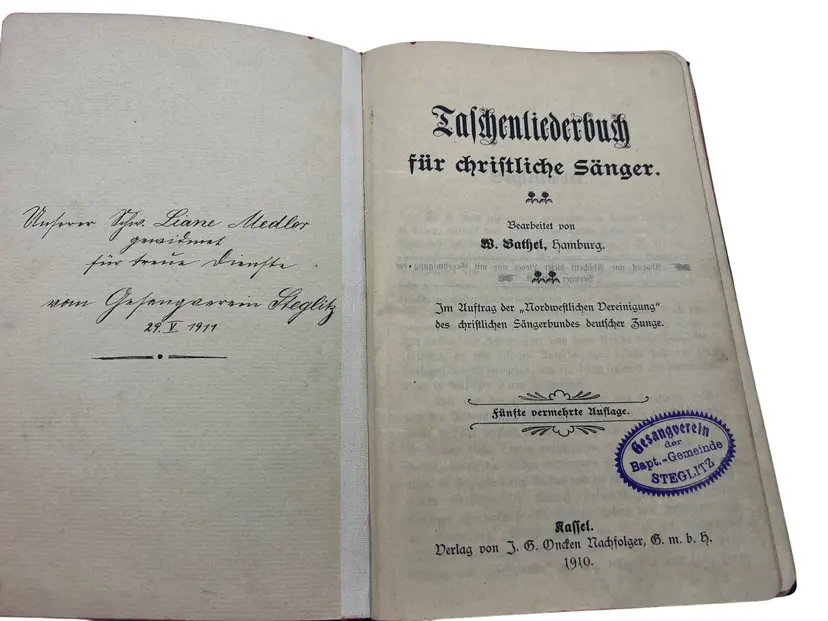 Unserer Schw. Liane Medler
gewidmet
für treue Dienste
vom Gesangverein Steglitz
29. V 1911
Taschenliederbuch
für christliche Sänger.
Bearbeitet von
W. Bathel, Hamburg.
Im Auftrag der „Nordwestlichen Vereinigung“
des christlichen Sängerbundes deutscher Zunge.
Fünfte vermehrte Auflage.
Gesangverein
der
Bapt.-Gemeinde
STEGLITZ
Kassel.
Verlag von J. G. Oncken Nachfolger, G. m. b. H.
1910.